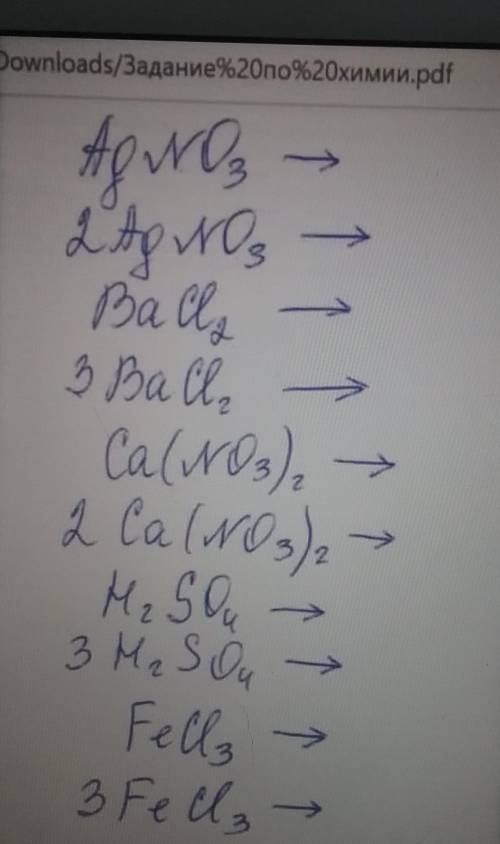 Downloads/Задание%20по%20химии.pdf
AgNO₃ →
2AgNO₃ →
BaCl₂ →
3BaCl₂ →
Ca(NO₃)₂ →
2Ca(NO₃)₂ →
H₂SO₄ →
3H₂SO₄ →
FeCl₃ →
3FeCl₃ →